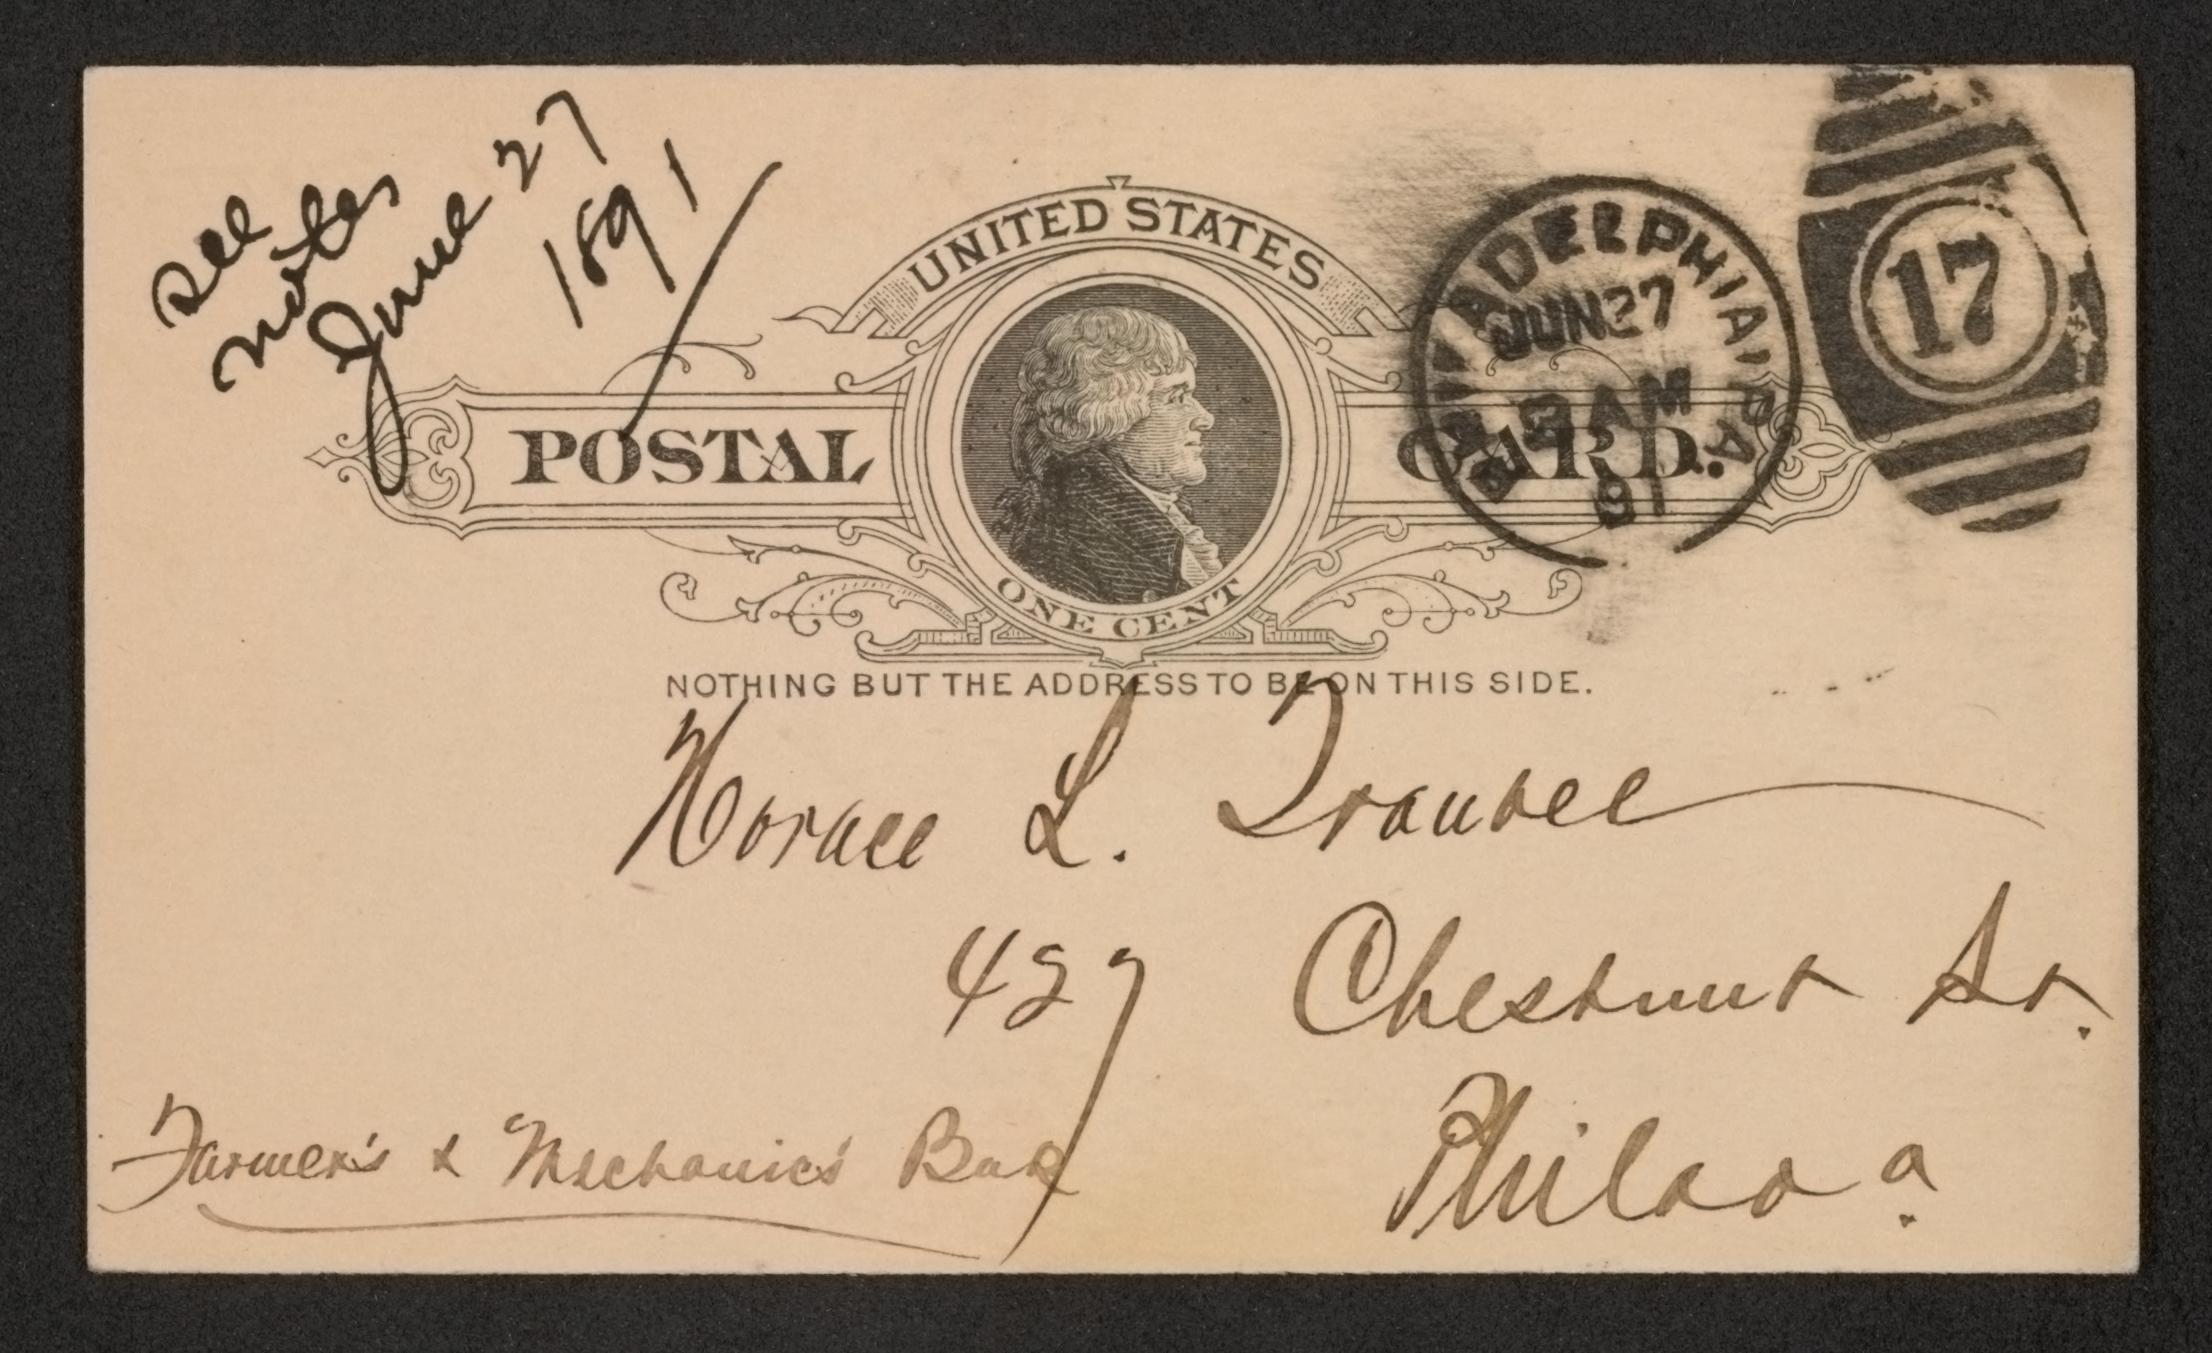 see
notes
June 27
1891
UNITED STATES
POSTAL CARD.
ONE CENT
NOTHING BUT THE ADDRESS TO BE ON THIS SIDE.
PHILADELPHIA, PA.
JUN 27
AM
91
17
Horace L. Traubel
427 Chestnut St.
Farmer's & Mechanics'
Philada